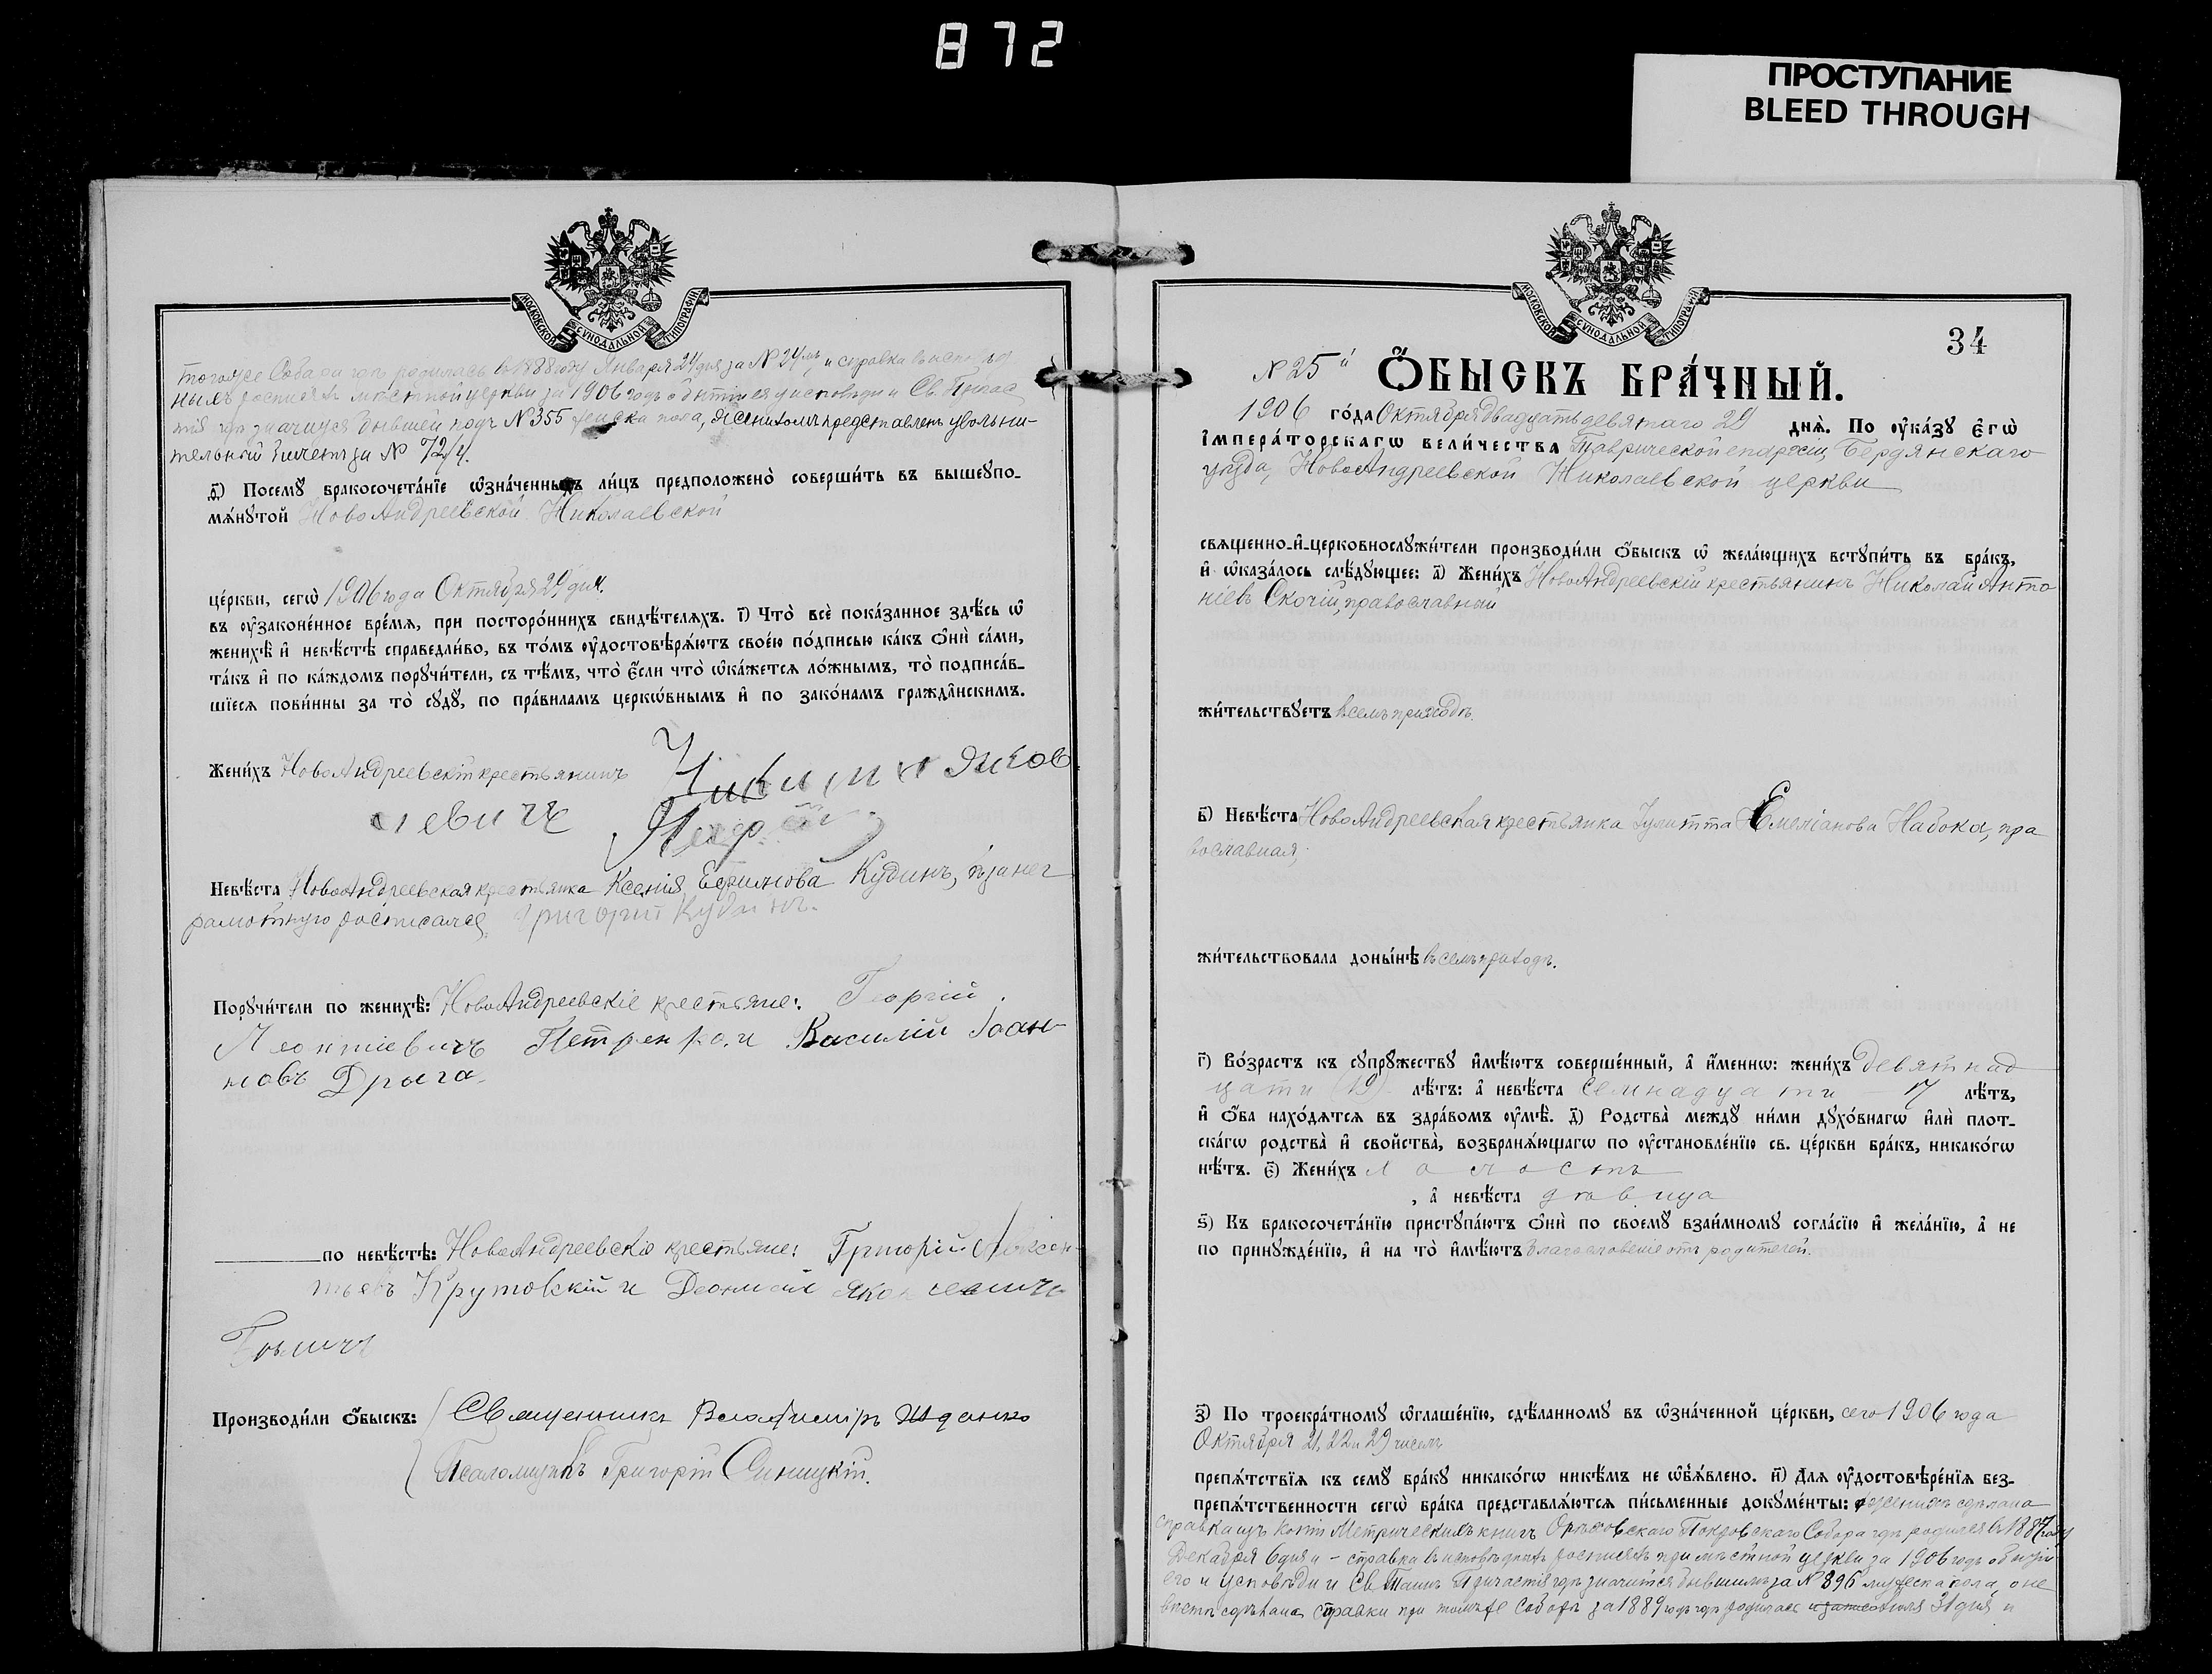 872
ПРОСТУПАНИЕ
BLEED THROUGH
МОСКОВСКОЙ СѴНОДАЛЬНОЙ ТИПОГРАФІИ
тогоже Собора гдѣ родилась въ 1888 году Января 24 дня за № 24мъ, и справка въ исповѣд
ныхъ росписяхъ мѣстной церкви за 1906 годъ о бытіи ея у исповѣди и Св. Причас
тія гдѣ значится бывшей подъ № 355 женска пола, Женихомъ представленъ увольни-
тельный билетъ за № 72/4.
д҃) Посемꙋ̀ бракосочета́нїе ѡ҆зна́ченныхъ ли́цъ предположено̀ соверши́ть въ вышеꙋпо-
мѧ́нꙋтой НовоАндреевской Николаевской
це́ркви, сегѡ̀ 1906 года Октября 29 дня.
въ ᲂу҆законе́нное вре́мѧ, при посторо́ннихъ свидѣ́телѧхъ. і҃) Что̀ всѐ пока́занное здѣ́сь ѡ҆
женихѣ̀ и҆ невѣ́стѣ справедли́во, въ то́мъ ᲂу҆достовѣрѧ́ютъ свое́ю по́дписью ка́къ ѻ҆нѝ са́ми,
та́къ и҆ по ка́ждомъ порꙋчи́тели, съ тѣ́мъ, что̀ є҆́сли что̀ ѡ҆ка́жетсѧ ло́жнымъ, то̀ подписа́в-
шїесѧ пови́нны за то̀ сꙋдꙋ̀, по пра́виламъ церкѡ́внымъ и҆ по зако́намъ гражда́нскимъ.
Жени́хъ НовоАндреевскій крестьянинъ Яков
левичъ
Невѣ́ста НовоАндреевская крестьянка Ксенія Ефимова Кудинъ, а за нег
рамотную росписался Григорій Кудинъ.
Порꙋчи́тели по женихѣ̀: НовоАндреевскіе крестьяне: Георгій
Леонтіевичъ Петренко, и Василій Іоан-
новъ Дрыга
по невѣ́стѣ: НовоАндреевскіе крестьяне: Григорій Авксен-
тьевъ Крутовскій и Діонисій Яковлевичъ
Производи́ли ѻ҆́быскъ: Священникъ Владиміръ Жданко
Псаломщикъ Григорій Синицкій.
МОСКОВСКОЙ СѴНОДАЛЬНОЙ ТИПОГРАФІИ
34
№ 25й
Ѻ҆́БЫСКЪ БРА́ЧНЫЙ.
1906 го́да Октября двадцать девятаго 29 днѧ̀. По ᲂу҆ка́зꙋ є҆гѡ̀
і҆мпера́торскагѡ вели́чества Таврической епархіи, Бердянскаго
уѣзда, НовоАндреевской Николаевской церкви
свѧщенно-и҆-церковнослꙋжи́тели производи́ли ѻ҆́быскъ ѡ҆ жела́ющихъ встꙋпи́ть въ бра́къ,
и҆ ѡ҆каза́лось слѣ́дꙋющее: а҃) Жени́хъ НовоАндреевскій крестьянинъ Николай Анто
ніевъ Скочій, православный
жи́тельствꙋетъ въ семъ приходѣ.
в҃) Невѣ́ста НовоАндреевская крестьянка Іулитта Емеліанова Набока, пра
вославная,
жи́тельствовала доны́нѣ въ семъ приходѣ.
г҃) Во́зрастъ къ сꙋпрꙋ́жествꙋ и҆мѣ́ютъ соверше́нный, а҆ и҆́меннѡ: жени́хъ девятнад
цати (19) лѣ́тъ: а҆ невѣ́ста Семнадцати - 17 лѣ́тъ,
и҆ ѻ҆́ба нахо́дѧтсѧ въ здра́вомъ ᲂу҆мѣ̀. д҃) Родства̀ междꙋ̀ ни́ми дꙋхо́внагѡ и҆лѝ плот-
ска́гѡ родства̀ и҆ свойства̀, возбранѧ́ющагѡ по ᲂу҆становле́нїю св. це́ркви бра́къ, никако́гѡ
нѣ́тъ. є҃) Жени́хъ холостъ
, а҆ невѣ́ста дѣвица
ѕ҃) Къ бракосочета́нїю пристꙋпа́ютъ ѻ҆нѝ по своемꙋ̀ взаи́мномꙋ согла́сїю и҆ жела́нїю, а҆ не
по принꙋжде́нїю, и҆ на то̀ и҆мѣ́ютъ благословеніе отъ родителей.
з҃) По троекра́тномꙋ ѡ҆глаше́нїю, сдѣ́ланномꙋ въ ѡ҆зна́ченной це́ркви, сего 1906 года
Октября 21, 22 и 29 чиселъ
препѧ́тствїѧ къ семꙋ̀ бра́кꙋ никако́гѡ никѣ́мъ не ѡ҆б̾ѧ́влено. и҃) Длѧ ᲂу҆достовѣре́нїѧ без-
препѧ́тственности сегѡ̀ бра́ка представлѧ́ютсѧ пи́сьменные докꙋме́нты: о женихѣ сдѣлана
справка изъ копіи Метрическихъ книгъ Орѣховскаго Покровскаго Собора гдѣ родился въ 1887 году
Декабря 6 дня и - справка въ исповѣдныхъ росписяхъ при мѣстной церкви за 1906 годъ о бытіи
его у исповѣди и Св. Таинъ Причастія гдѣ значится бывшимъ за № 396 мужеска пола, о не
вѣстѣ сдѣлана справка при томъ же Соборѣ за 1889 годъ гдѣ родилась Іюля 31 дня и